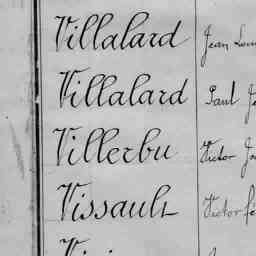 Villalard Jean Lou
Villalard Paul J
Villerbu Victor Jo
Vissault Victor fé